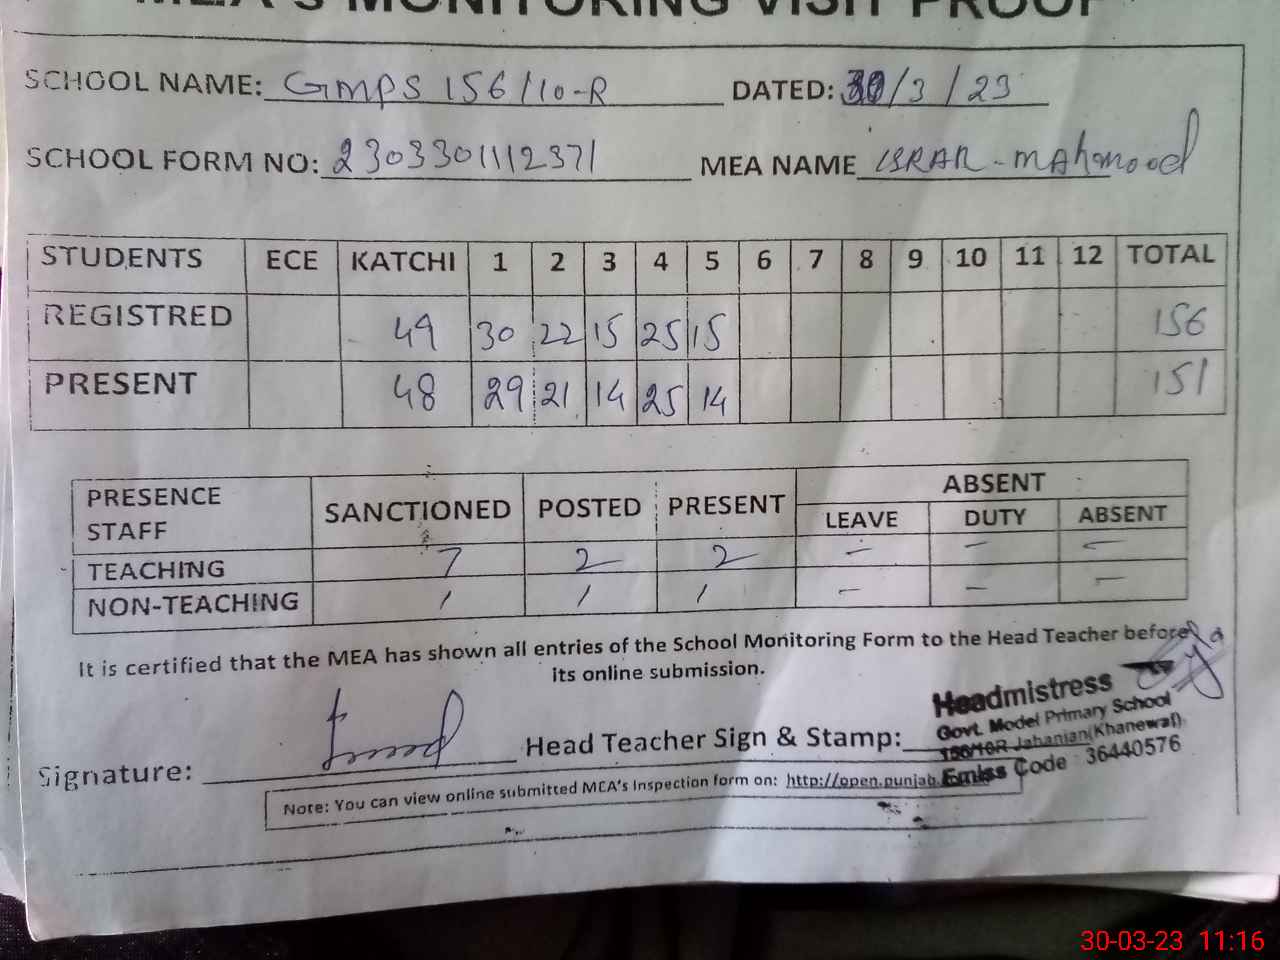 MEA's MONITORING VISIT PROOF
SCHOOL NAME: GMPS 156/10-R DATED: 30/3/23
SCHOOL FORM NO: 2303301112371 MEA NAME ISRAR-MAHmood
STUDENTS ECE KATCHI 1 2 3 4 5 6 7 8 9 10 11 12 TOTAL
REGISTRED 49 30 22 15 25 15 156
PRESENT 48 29 21 14 25 14 151
PRESENCE STAFF SANCTIONED POSTED PRESENT ABSENT
LEAVE DUTY ABSENT
TEACHING 7 2 2 - - -
NON-TEACHING 1 1 1 - - -
It is certified that the MEA has shown all entries of the School Monitoring Form to the Head Teacher before
its online submission.
Signature: Head Teacher Sign & Stamp:
Headmistress
Govt. Model Primary School
156/10R Jahanian(Khanewal)
Emiss Code : 36440576
Note: You can view online submitted MEA's Inspection form on: http://open.punjab.
30-03-23 11:16